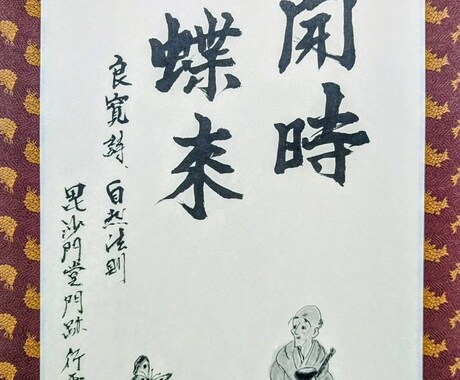 開時
蝶来
良寛詩、自然法則
毘沙門堂門跡 行